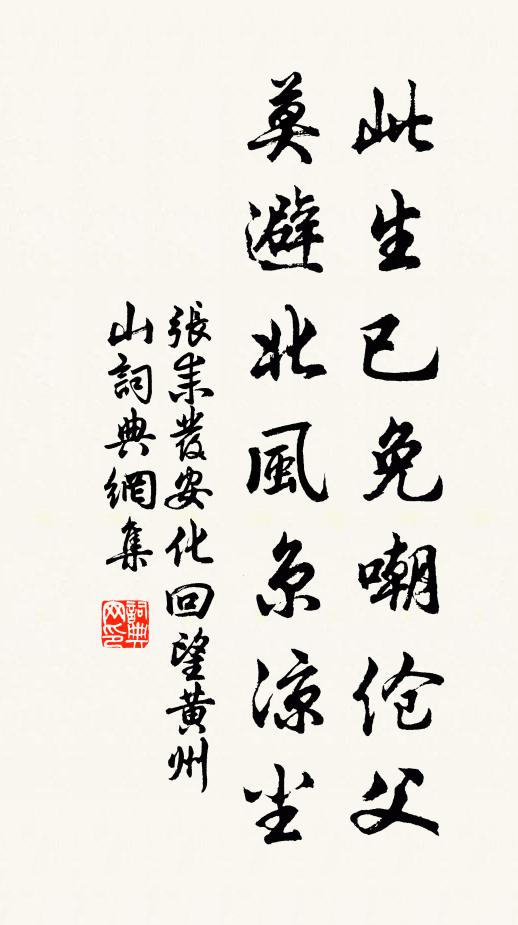 此生已免嘲伧父
莫避北風京涼尘
張耒發安化回望黄州
山詞典網集
詞典网印